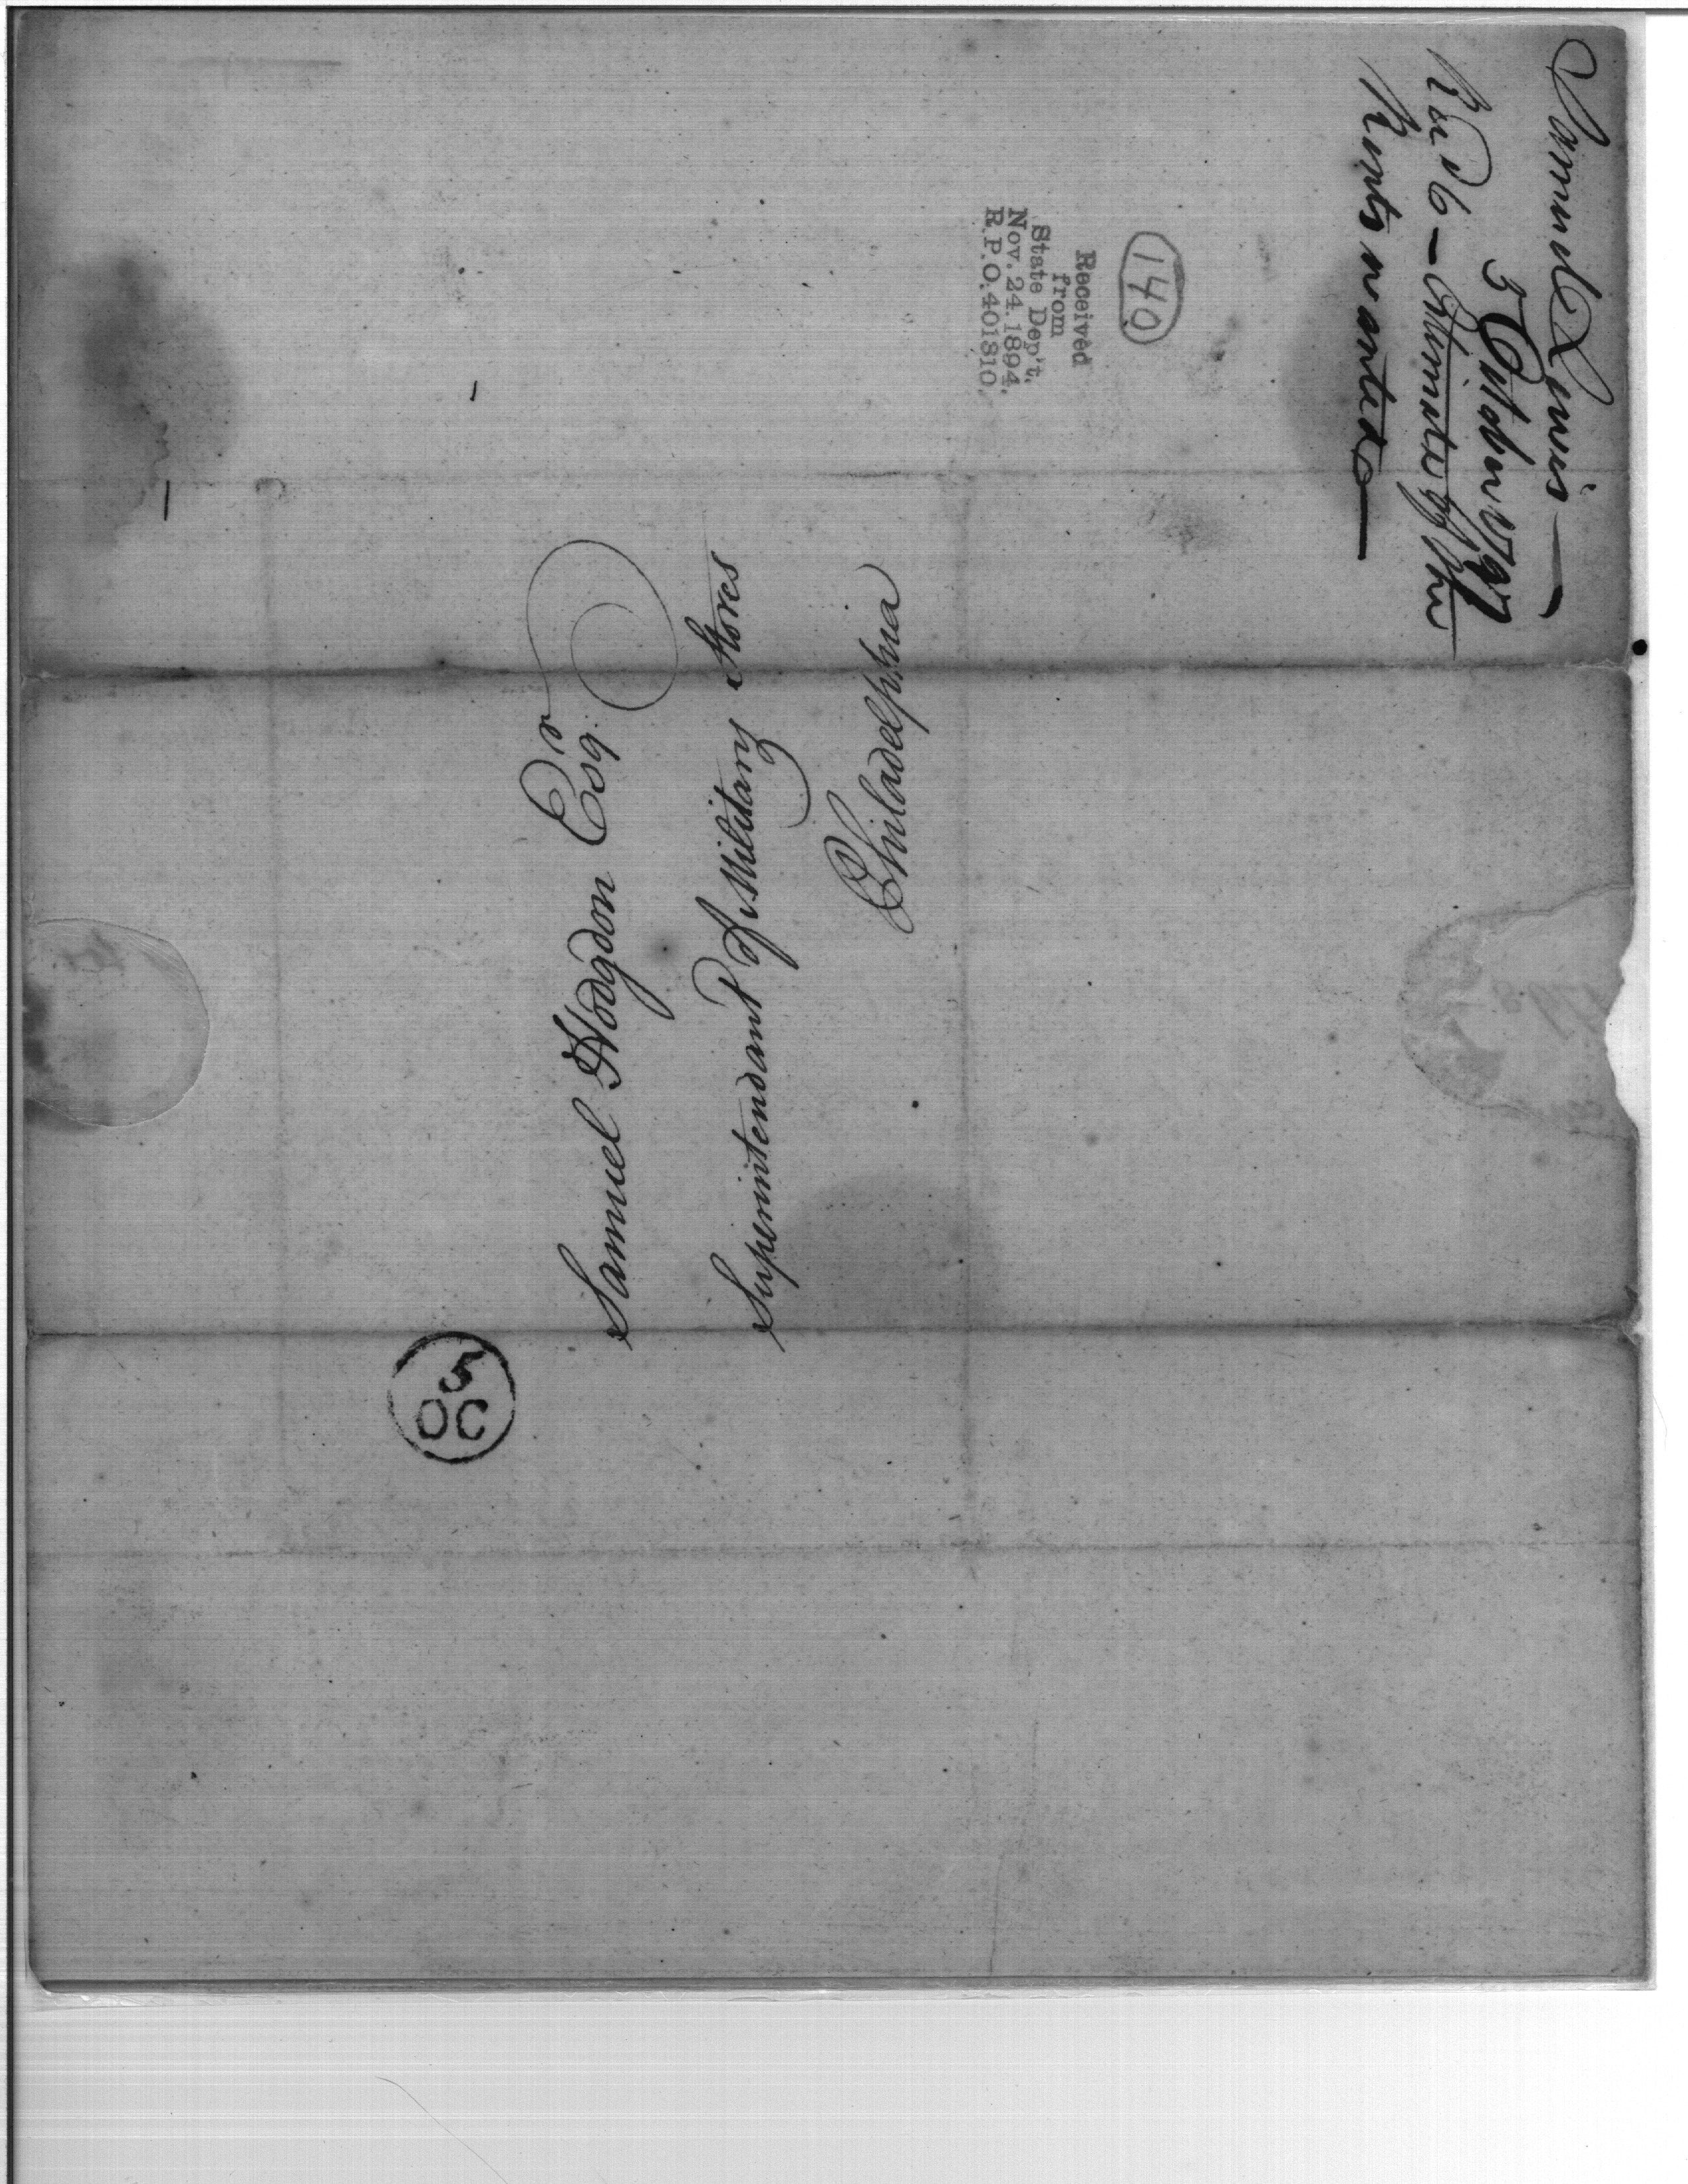 Samuel Lewis —
5 October 1797
Rec'd 6 — Minute of the
Rents wanted —
140
Received
from
State Dep't.
Nov. 24. 1894.
R.P.O. 401310.
Samuel Hodgdon Esqr.
Superintendant of Military Stores
Philadelphia
5
OC